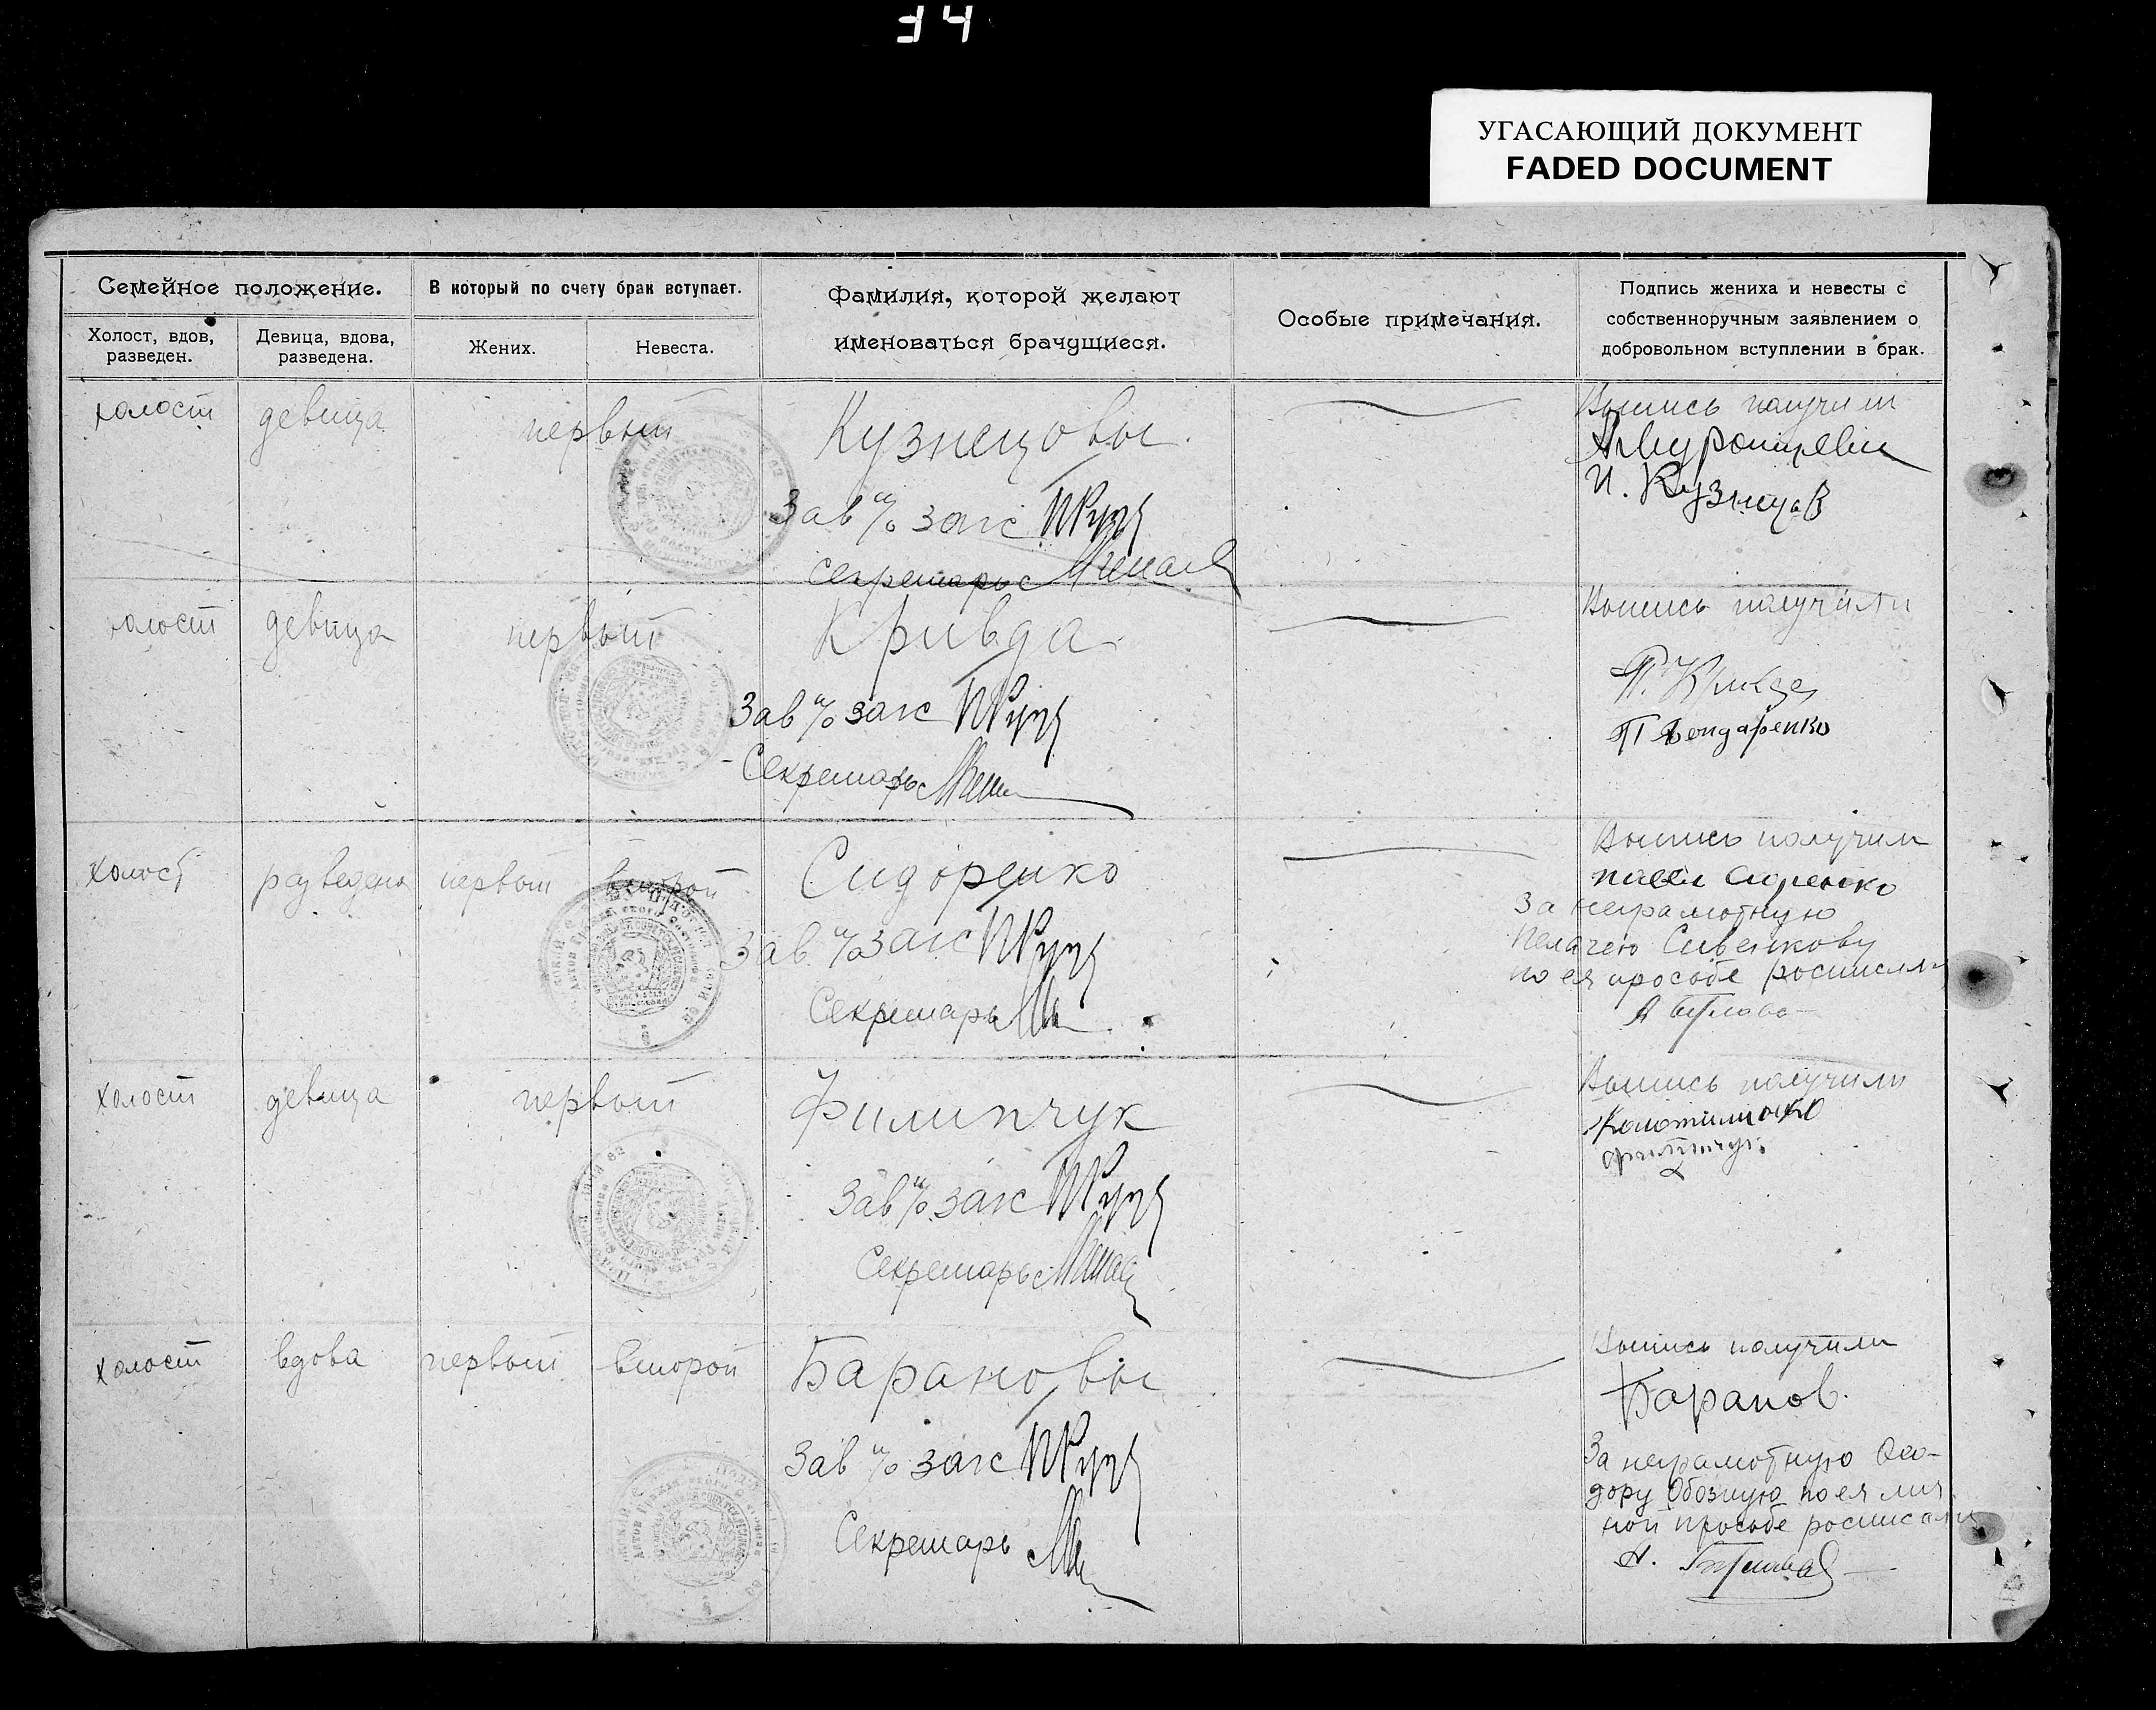 УГАСАЮЩИЙ ДОКУМЕНТ
FADED DOCUMENT
Семейное положение.
Холост, вдов, разведен.
Девица, вдова, разведена.
В который по счету брак вступает.
Жених.
Невеста.
Фамилия, которой желают
именоваться брачущиеся.
Особые примечания.
Подпись жениха и невесты с
собственноручным заявлением о
добровольном вступлении в брак.
холост девица первый Кузнецовы
Зав п/о загс
Секретарь
Выпись получили
И. Кузнецов
холост девица первый Кривда
Зав п/о загс
Секретарь
Выпись получили
П. Кривда
П Бондаренко
холост разведена первый второй Сидоренко
Зав п/о загс
Секретарь
Выпись получили
За неграмотную
Пелагею Сивенкову
по ея просьбе
холост девица первый Филипчук
Зав п/о загс
Секретарь
Выпись получили
холост вдова первый второй Барановы
Зав п/о загс
Секретарь
Выпись получили
Баранов.
За неграмотную Фео-
дору Обозную по ея лич
ной просьбе